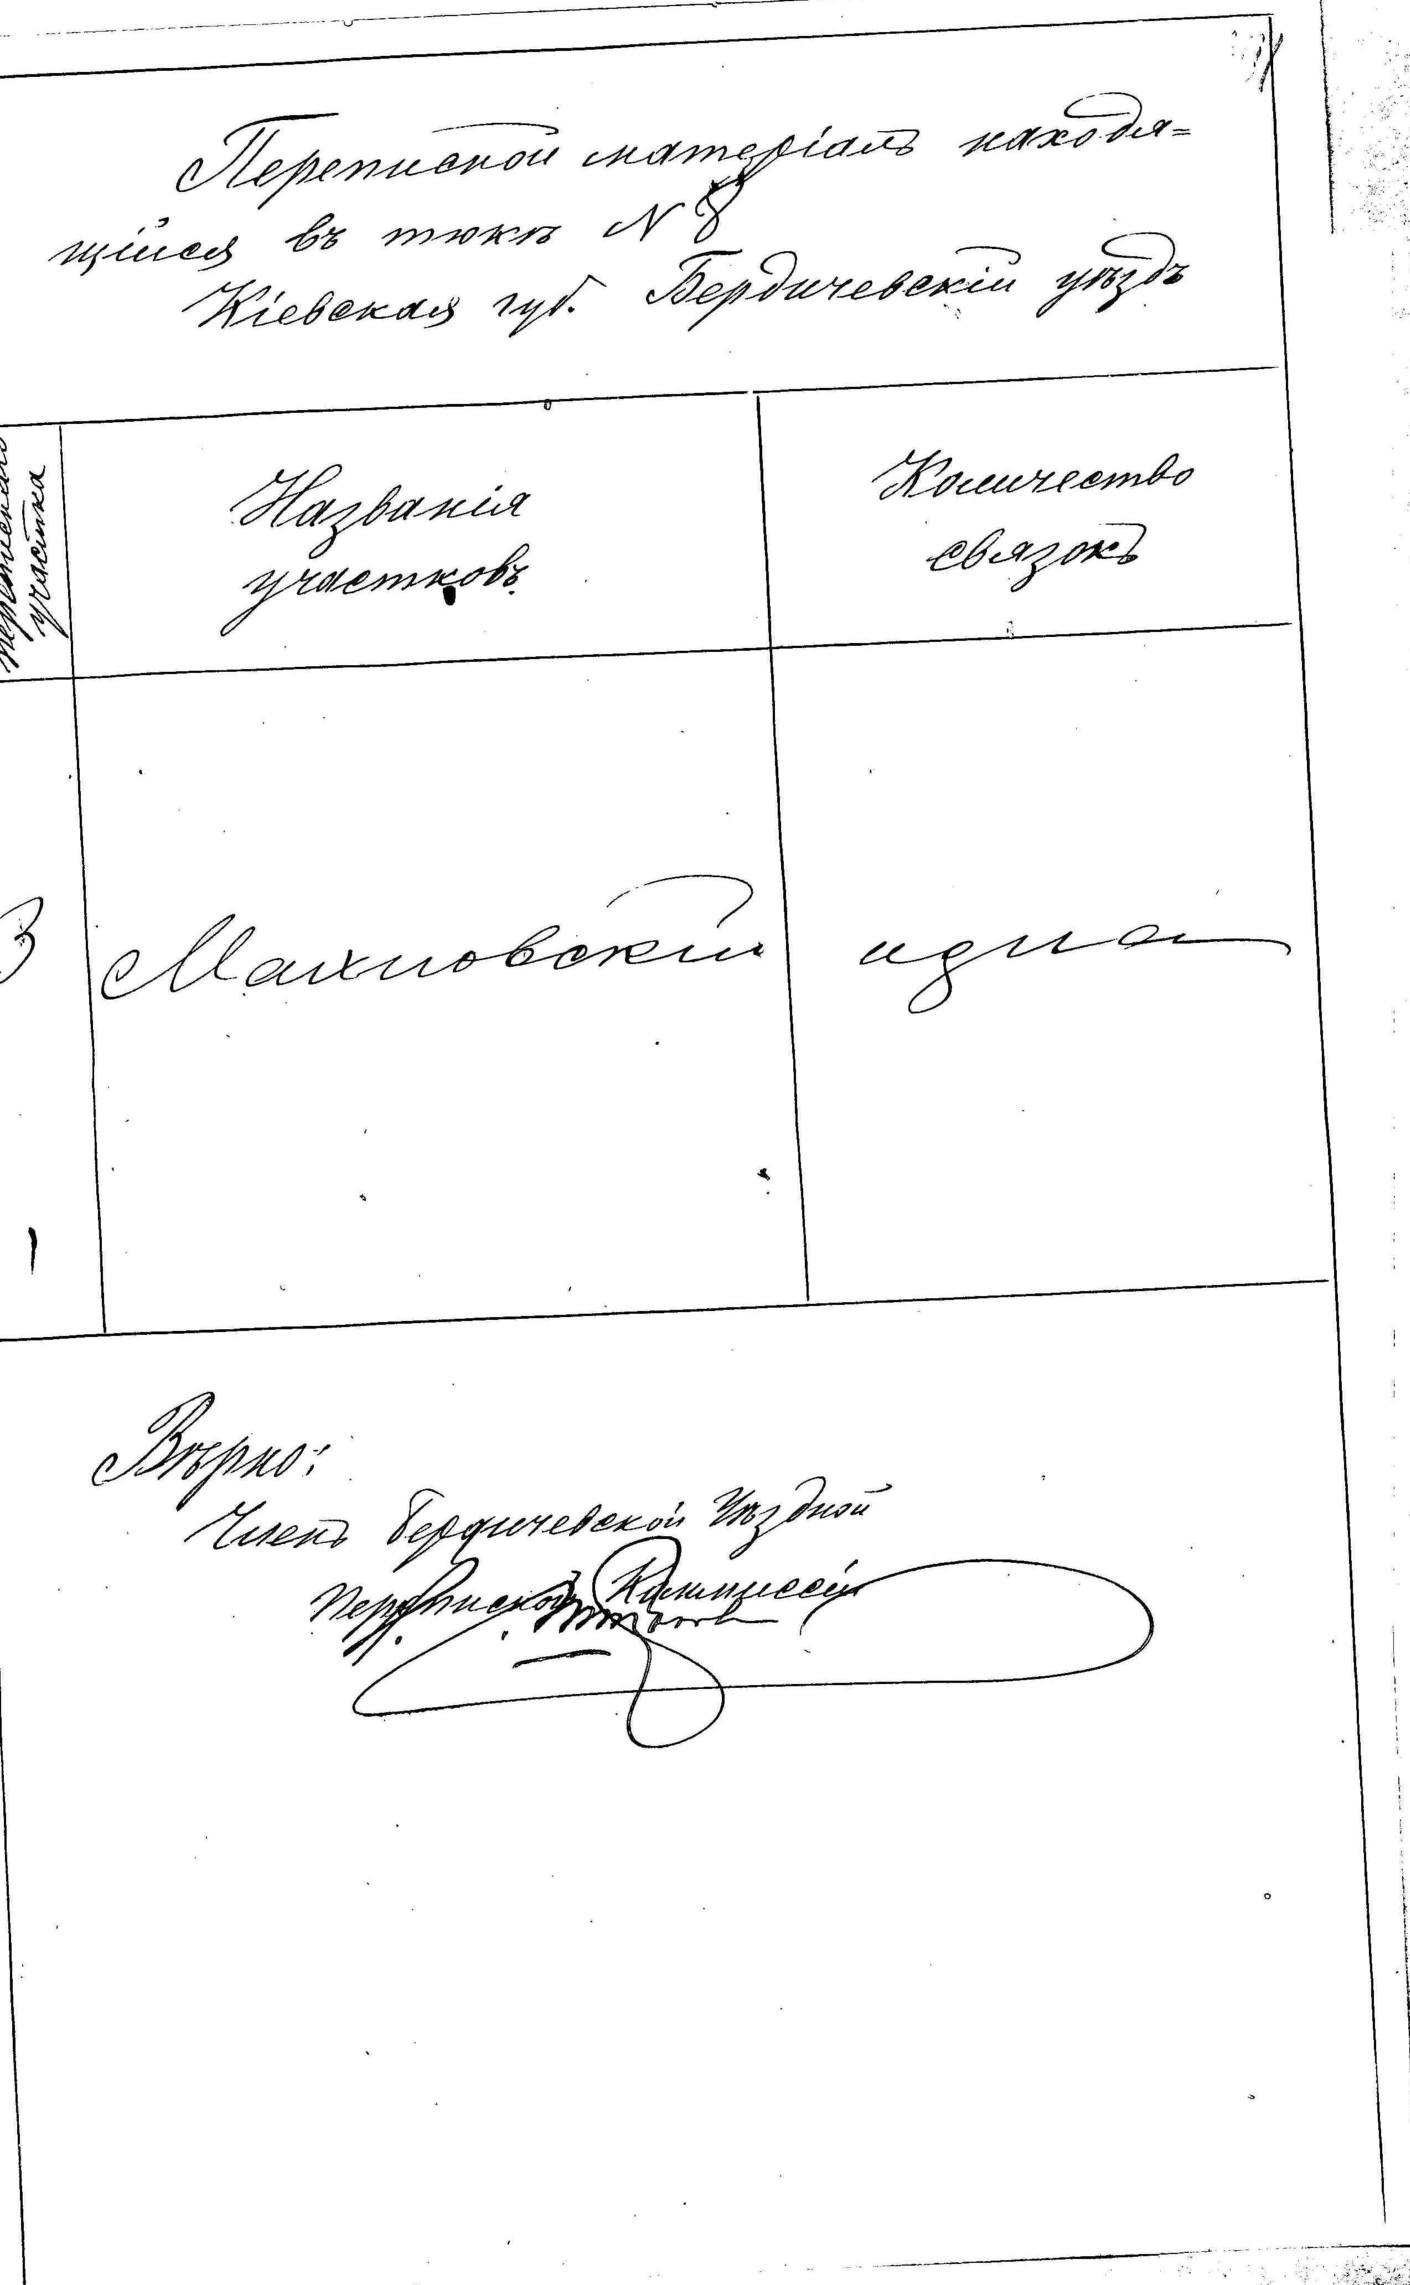 Переписной матеріалъ находя=
щійся въ тюкѣ N 8
Кіевская губ. Бердичевскій уѣздъ
участка
Названія
участковъ
Количество
связокъ
3
Махновскій
одна
Вѣрно:
Членъ Бердичевской Уѣздной
Переписной Коммиссіи